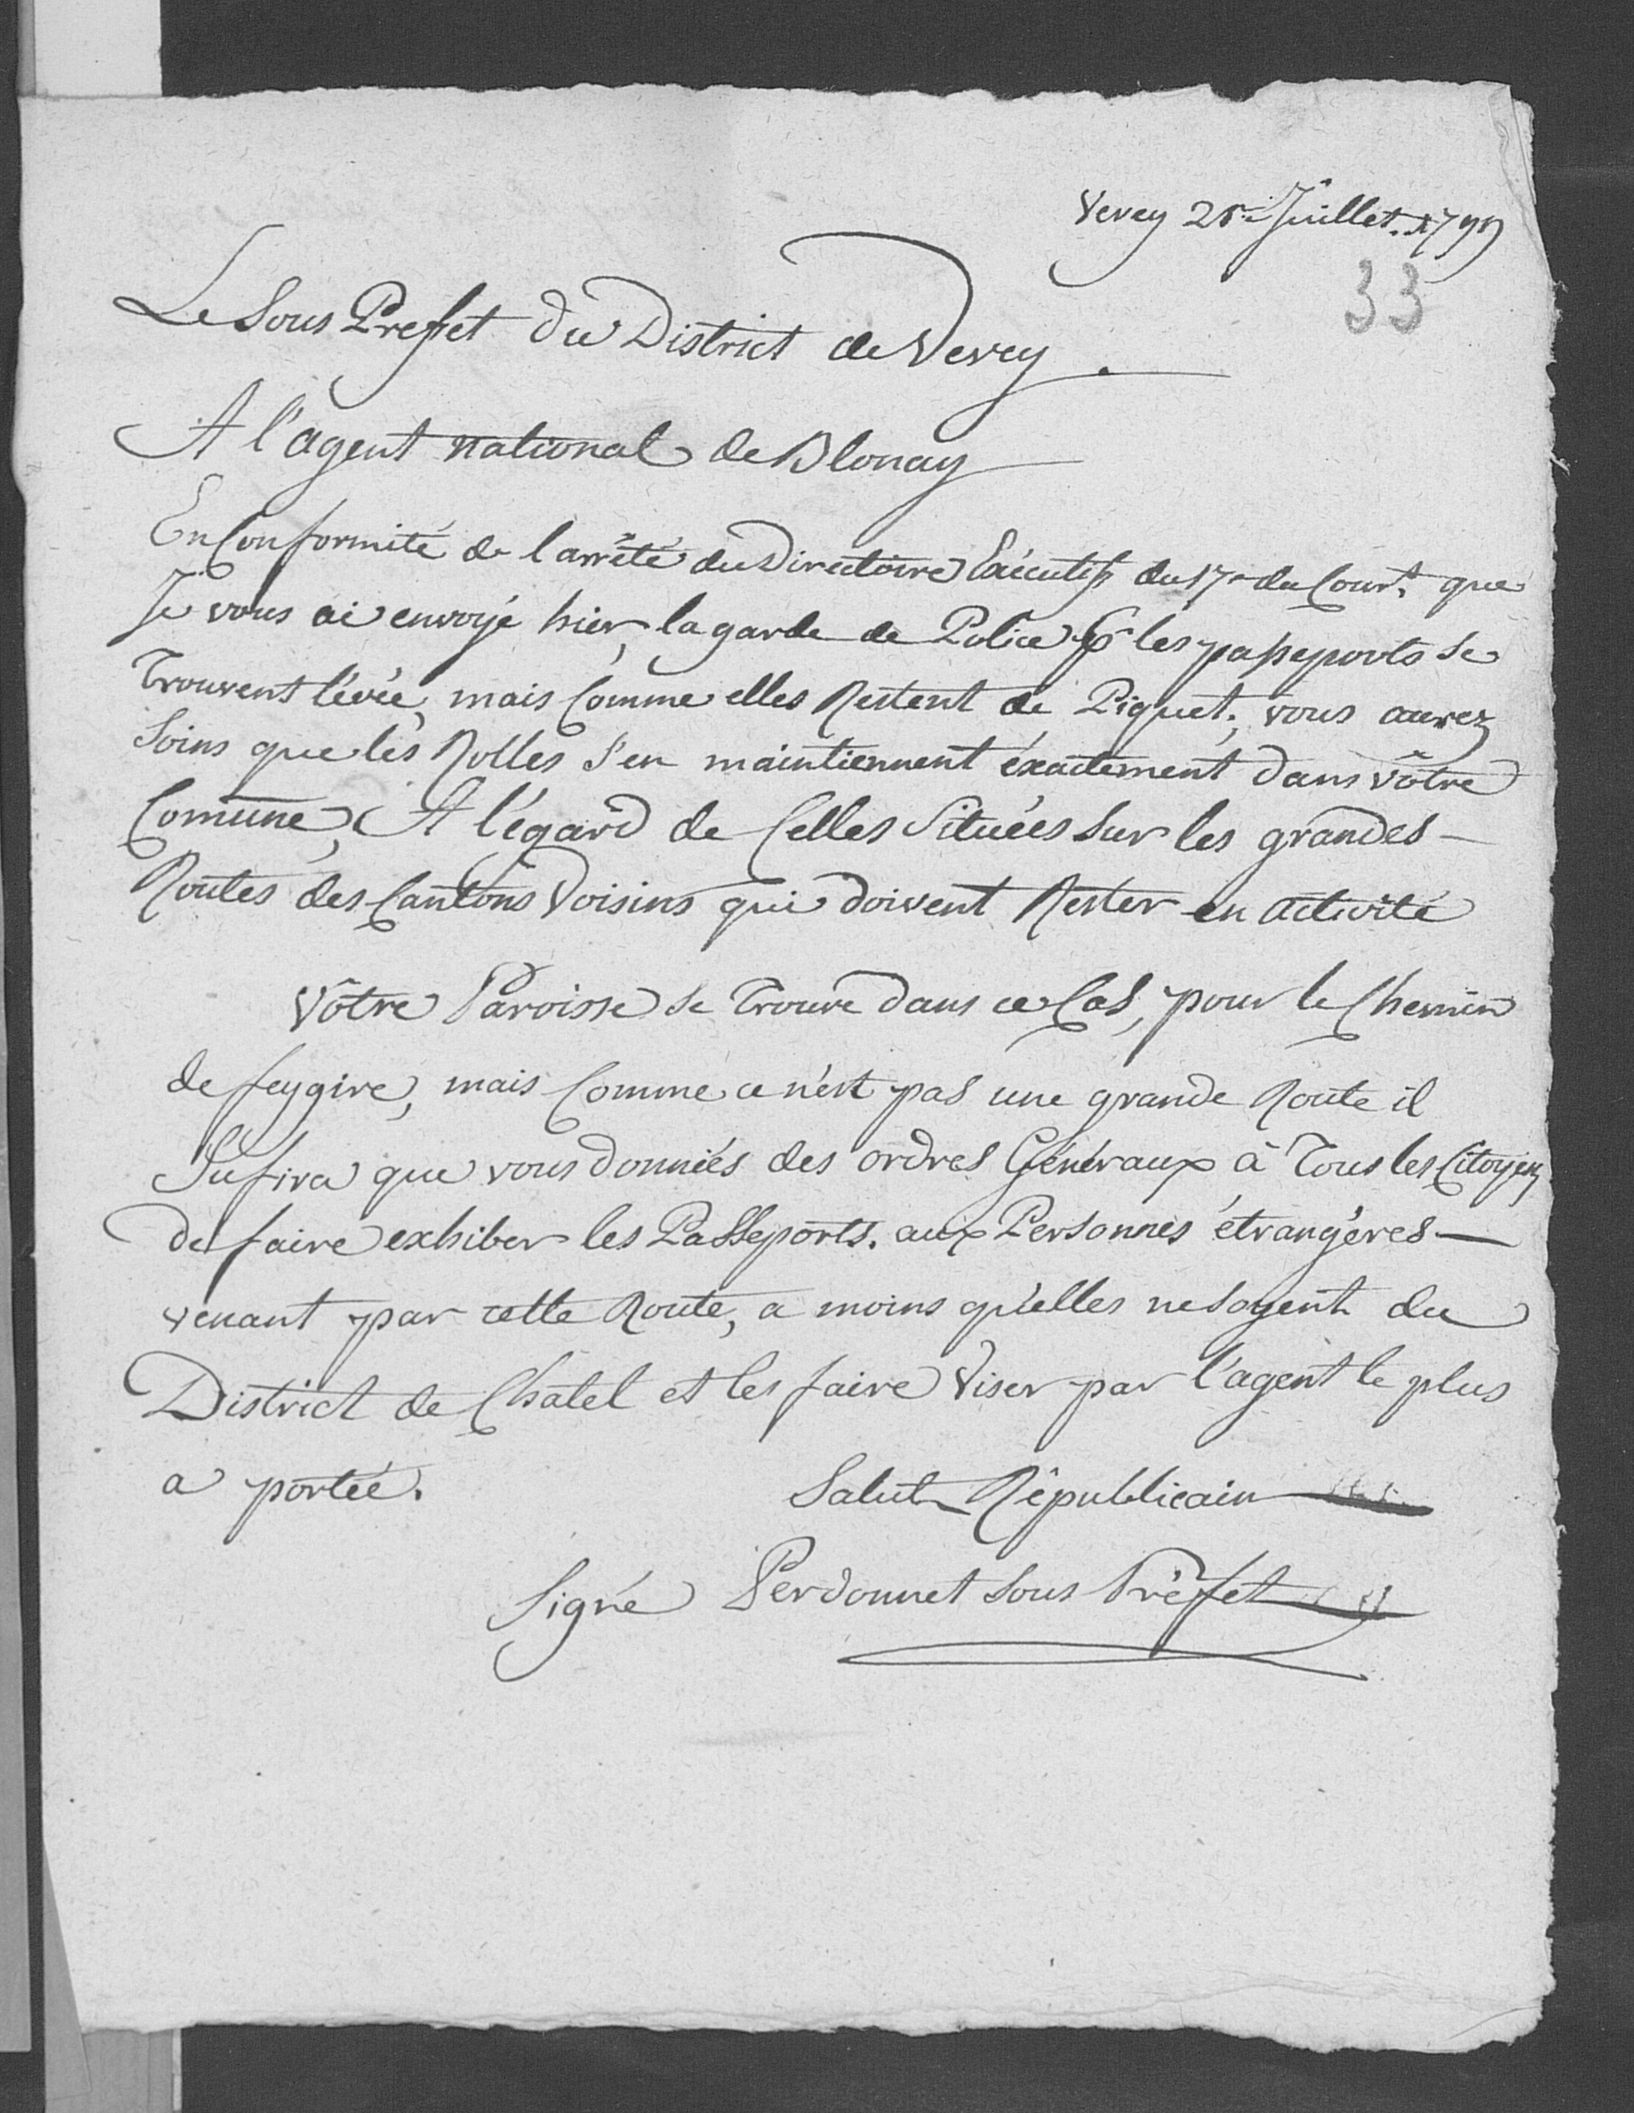 Vevey 25e Juillet. 1799
33
Le Sous Prefet du District de Vevey.
A l'agent national de Blonay
En Conformité de l'arrêté du Directoire Exécutif du 17e du Court. que
Je vous ai envoyé hier, la garde de Police pr les passeports se
Trouvent lévée, mais Comme elles Restent de Piquet, vous aurez
Soins que les Rolles s'en maintiennent éxactement dans vôtre
Comune, A l'égard de Celles Situées sur les grandes
Routes des Cantons Voisins qui doivent Rester en activité
Vôtre Paroisse se Trouve dans ce Cas, pour le Chemin
de feygire, mais Comme ce n'est pas une grande Route il
Sufira que vous donniés des ordres Généraux à Tous les Citoyens
de faire exhiber les Passeports. aux Personnes étrangères
venant par cette Route, a moins qu'elles ne soyent du
District de Chatel et les faire Viser par l'agent le plus
a portée.
Salut Républicain
Signé Perdonnet Sous Préfet